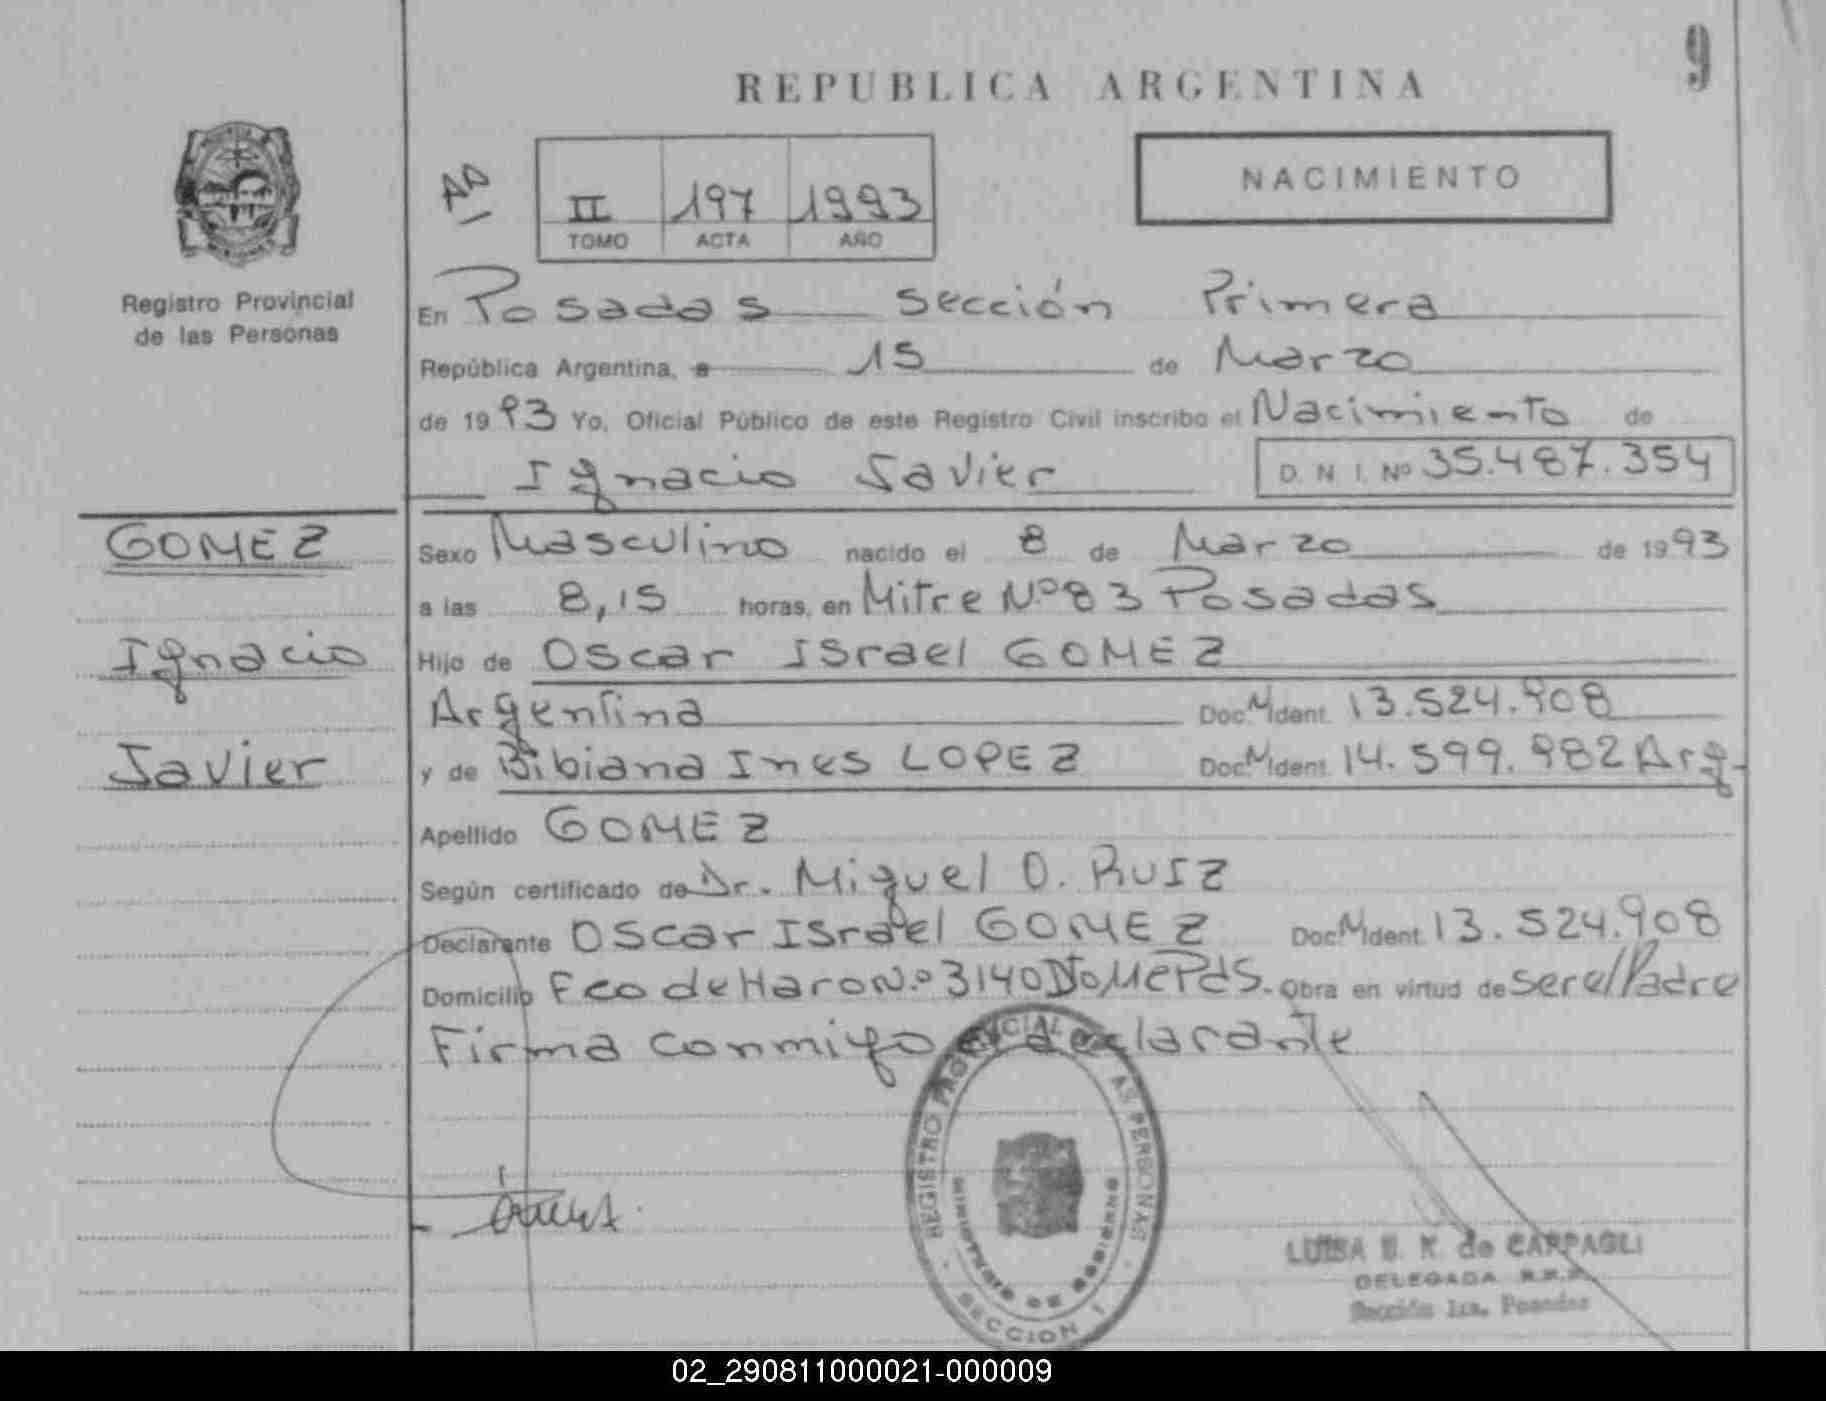 9
REPUBLICA ARGENTINA
NACIMIENTO
II 197 1993
TOMO ACTA AÑO
Registro Provincial
de las Personas
En Posadas Sección Primera
República Argentina, a 15 de Marzo
de 1993 Yo, Oficial Público de este Registro Civil inscribo el Nacimiento de
Ignacio Javier D. N. I. Nº 35.487.354
GOMEZ
Ignacio
Javier
Sexo Masculino nacido el 8 de Marzo de 1993
a las 8,15 horas, en Mitre Nº 83 Posadas
Hijo de Oscar Israel GOMEZ
Argentina Doc. M Ident. 13.524.908
y de Bibiana Ines LOPEZ Doc. M Ident. 14.599.982 Arg.
Apellido GOMEZ
Según certificado de Dr. Miguel O. RUIZ
Declarante Oscar Israel GOMEZ Doc. M Ident. 13.524.908
Domicilio Fco de Haro N.º 3140 Pds. Obra en virtud de ser el Padre
Firma conmigo el declarante
REGISTRO PROVINCIAL DE LAS PERSONAS
MINISTERIO DE GOBIERNO
SECCION 1
LUISA de CAPPAGLI
DELEGADA R.P.P.
Sección 1ra. Posadas
02_290811000021-000009